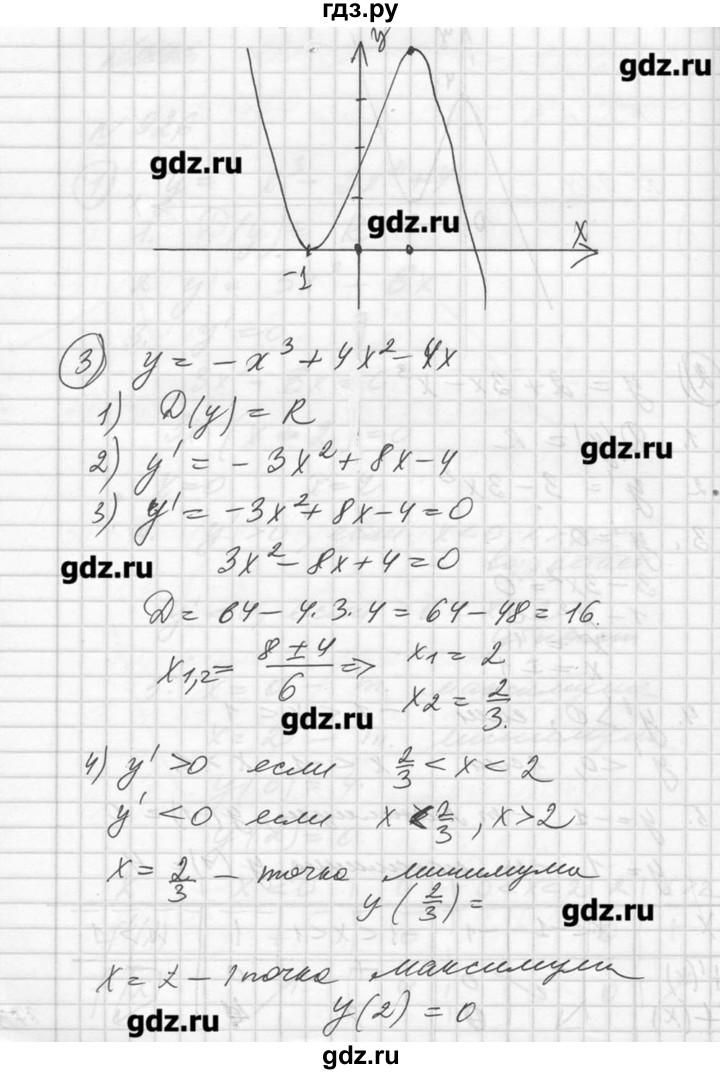 гдз.ру
y
gdz.ru
gdz.ru
gdz.ru
x
-1
3) y = -x³ + 4x² - 4x
1) D(y) = R
gdz.ru
2) y' = -3x² + 8x - 4
3) y' = -3x² + 8x - 4 = 0
gdz.ru
3x² - 8x + 4 = 0
D = 64 - 4·3·4 = 64 - 48 = 16.
x1,2 = (8 ± 4)/6 => x1 = 2
x2 = 2/3.
gdz.ru
4) y' > 0 если 2/3 < x < 2
y' < 0 если x < 2/3, x > 2
x = 2/3 - точка минимума
y(2/3) =
gdz.ru
x = 2 - точка максимума
y(2) = 0
gdz.ru
gdz.ru